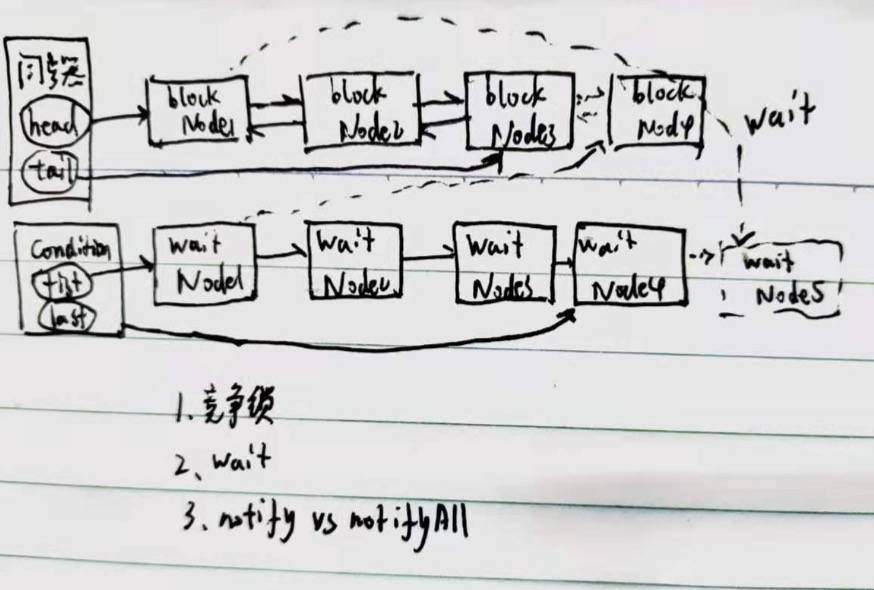 同步器
head
tail
block Node1
block Node2
block Node3
block Nod4
wait
Condition
first
last
wait Node1
wait Node2
wait Node3
wait Node4
wait Node5
1. 竞争锁
2、wait
3、notify vs notifyAll